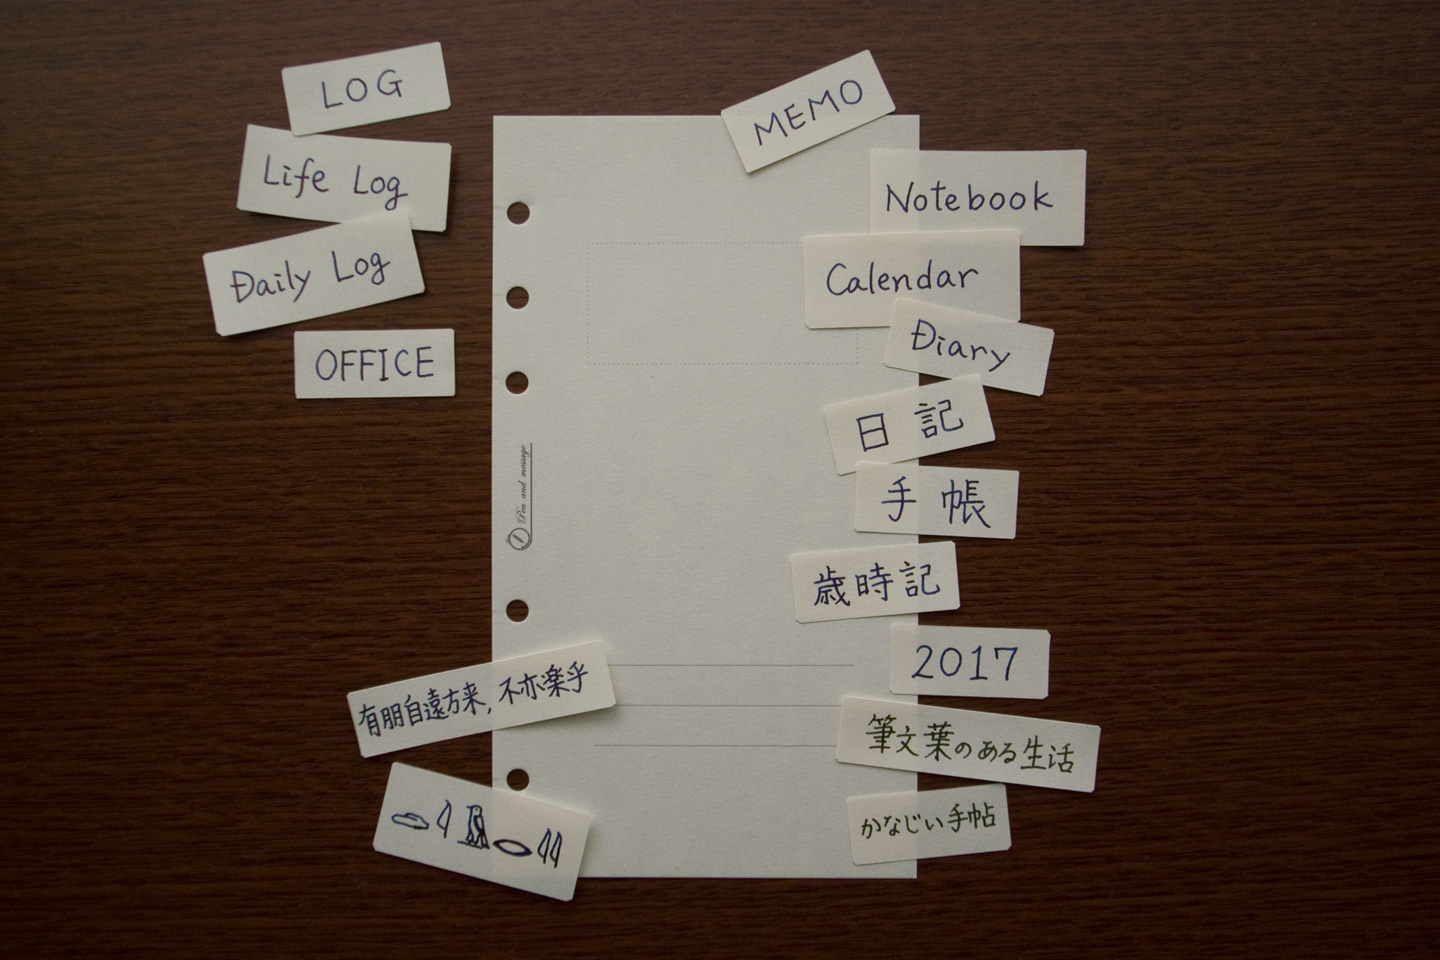 LOG
Life Log
Daily Log
OFFICE
MEMO
Notebook
Calendar
Diary
日記
手帳
歳時記
2017
筆文葉のある生活
かなじい手帖
Pen and message
有朋自遠方来,不亦楽乎